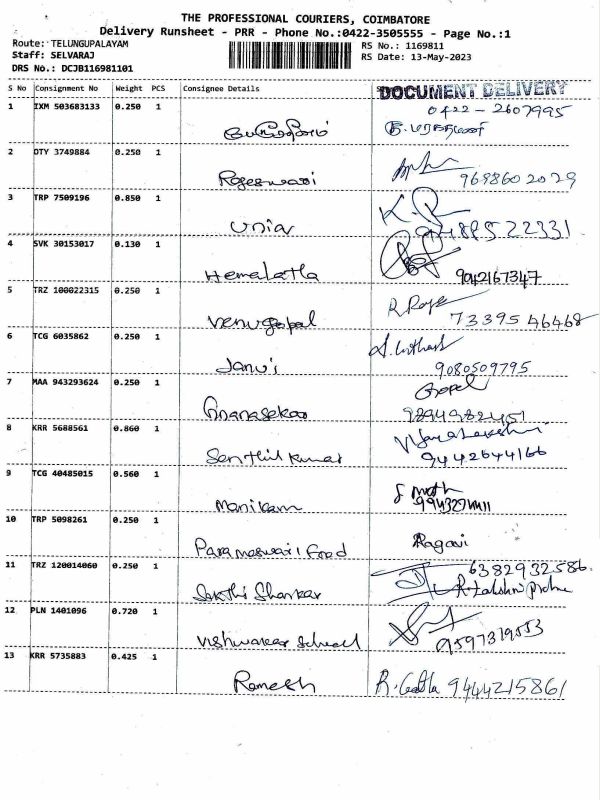 THE PROFESSIONAL COURIERS, COIMBATORE
Delivery Runsheet - PRR - Phone No.:0422-3505555 - Page No.:1
Route: TELUNGUPALAYAM
RS No.: 1169811
Staff: SELVARAJ
RS Date: 13-May-2023
DRS No.: DCJB116981101
S No Consignment No Weight PCS Consignee Details
DOCUMENT DELIVERY
1 IXM 503683133 0.250 1
0422-2607995
2 DTY 3749884 0.250 1
Rajeswari 9698602029
3 TRP 7509196 0.850 1
K.R
4 SVK 30153017 0.130 1
Hemalatha 9042167347
5 TRZ 100022315 0.250 1
Venugopal 7339546468
6 TCG 6035862 0.250 1
9080509795
7 MAA 943293624 0.250 1
Gopal
Gnanasekar
8 KRR 5688561 0.860 1
Senthil kumar 9442644166
9 TCG 40485015 0.560 1
Manikam
10 TRP 5098261 0.250 1
Parameswari Food Ragavi
11 TRZ 120014060 0.250 1
6382932586
Sakthi Shankar
12 PLN 1401096 0.720 1
Vishwakar School 9597319553
13 KRR 5735883 0.425 1
Ramesh R. Geetha 9444215861